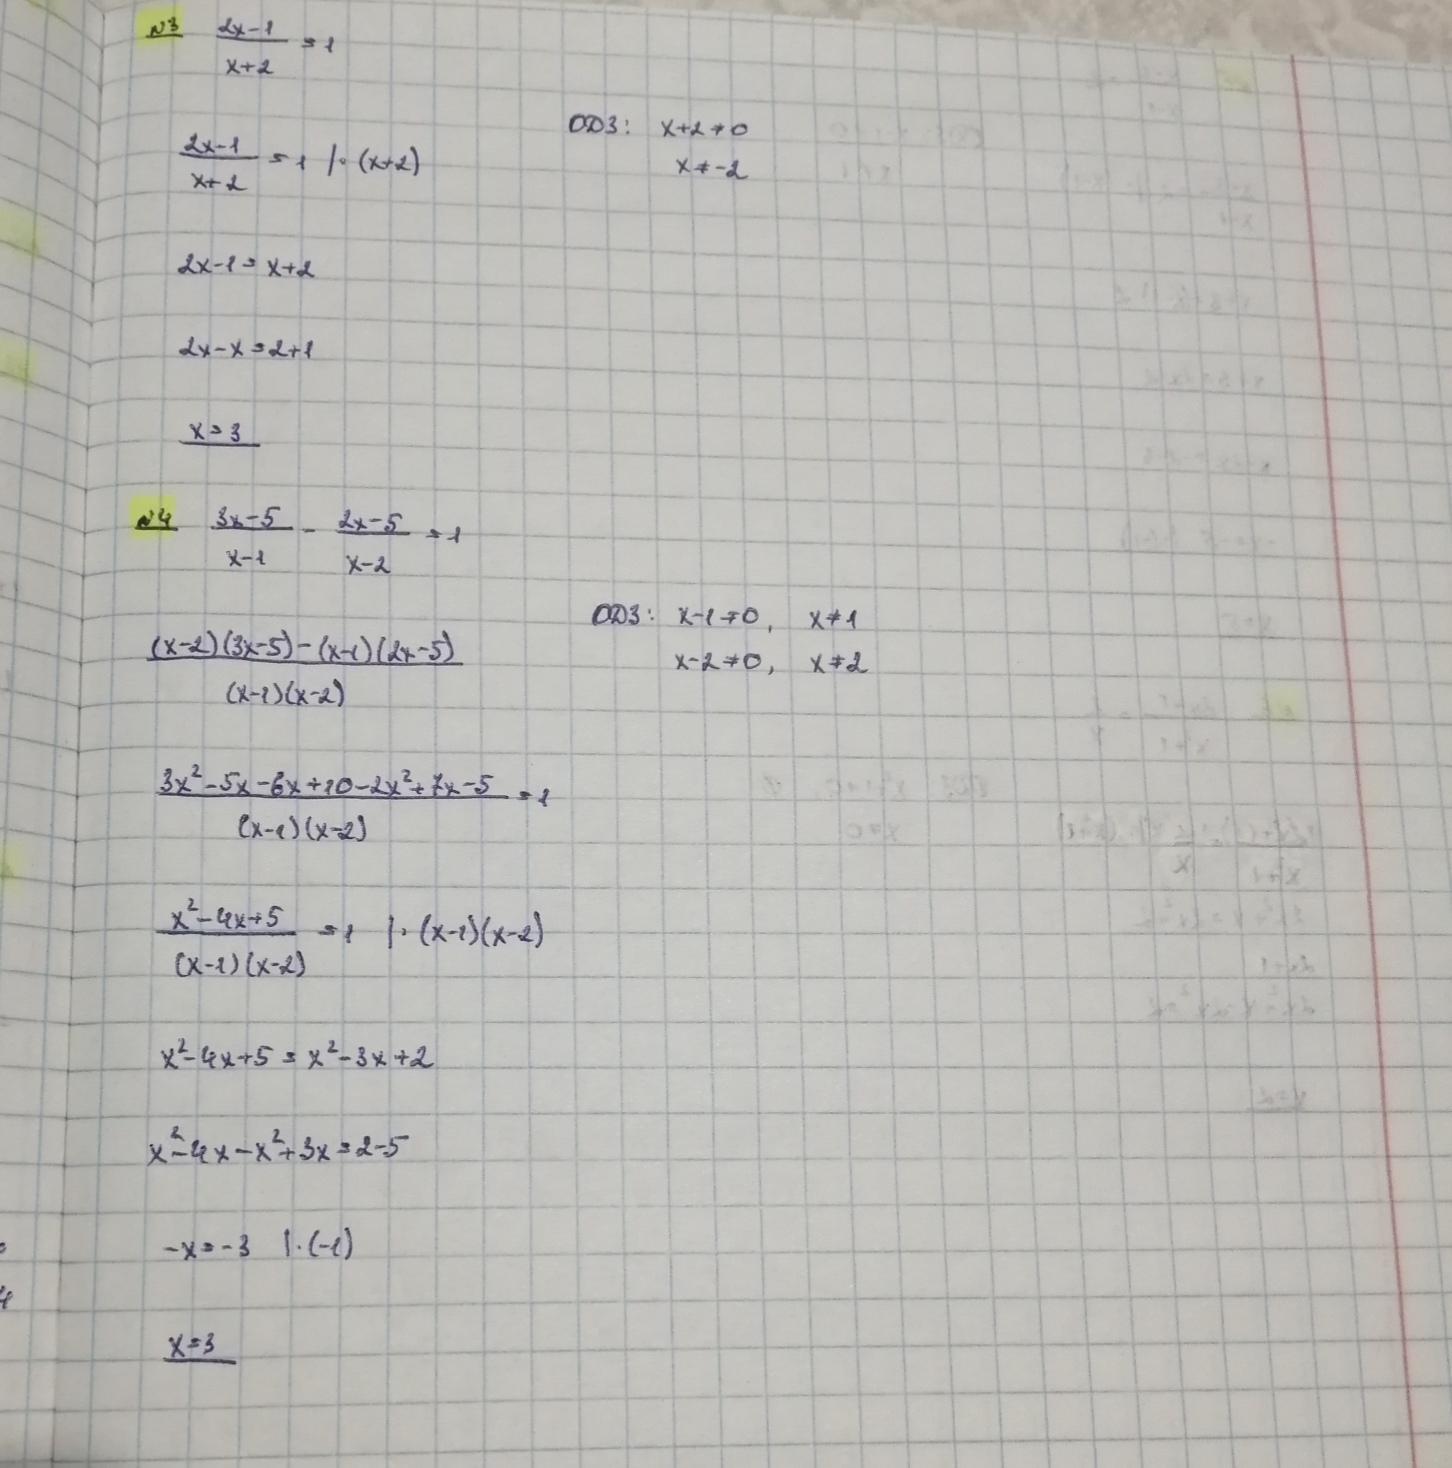 №3 (2x-1)/(x+2) = 1
ОДЗ: x+2≠0
x≠-2
(2x-1)/(x+2) = 1 |·(x+2)
2x-1=x+2
2x-x=2+1
x=3
№4 (3x-5)/(x-1) - (2x-5)/(x-2) = 1
ОДЗ: x-1≠0, x≠1
x-2≠0, x≠2
((x-2)(3x-5)-(x-1)(2x-5))/((x-1)(x-2))
(3x²-5x-6x+10-2x²+7x-5)/((x-1)(x-2)) = 1
(x²-4x+5)/((x-1)(x-2)) = 1 |·(x-1)(x-2)
x²-4x+5=x²-3x+2
x²-4x-x²+3x=2-5
-x=-3 |·(-1)
x=3